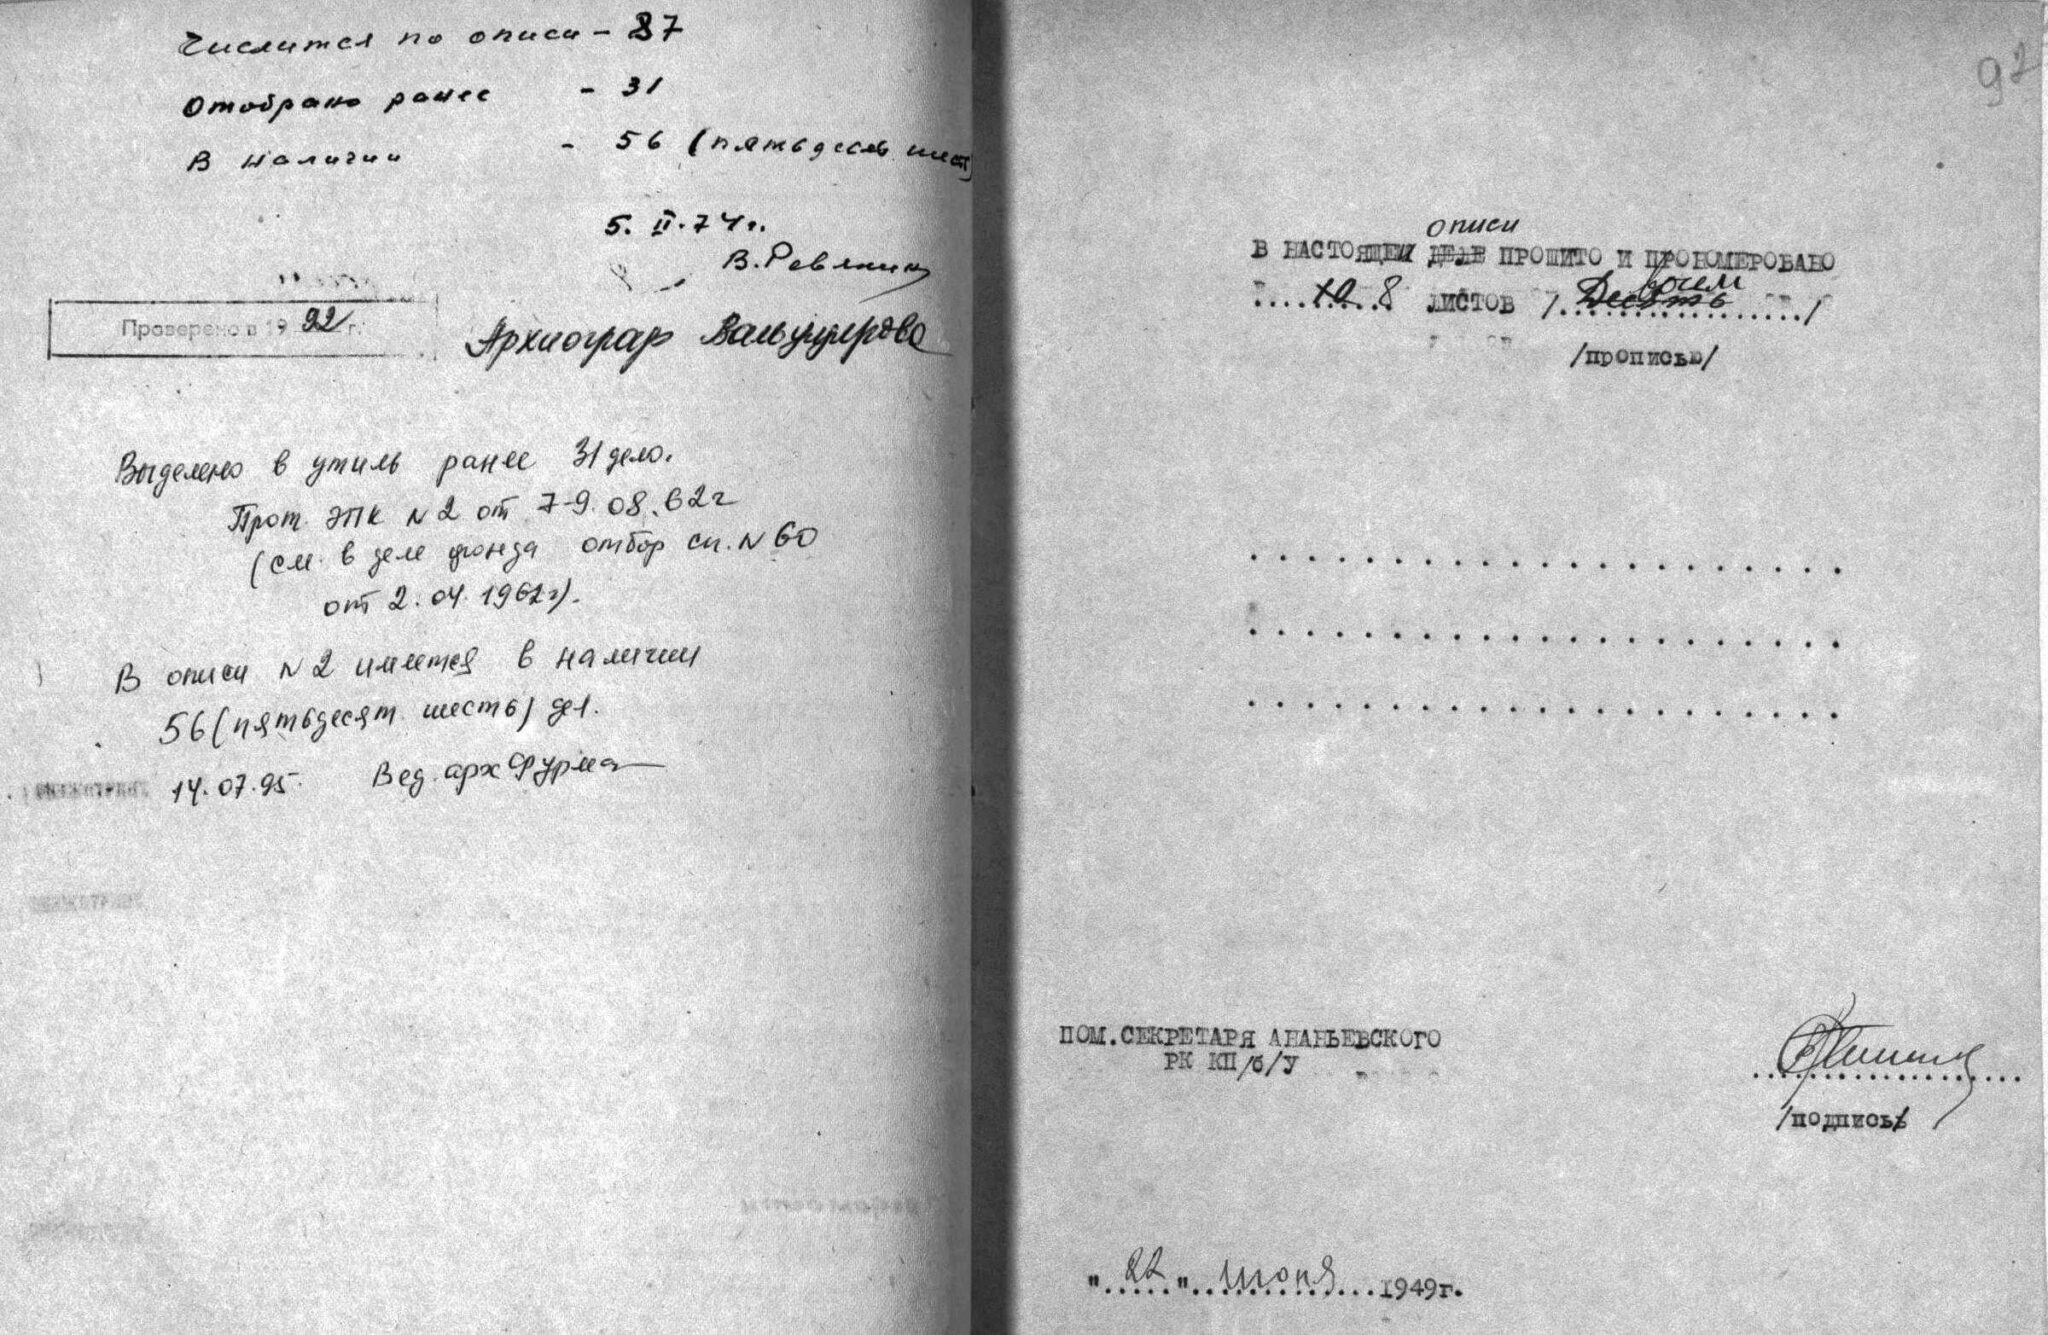 Числится по описи - 87
Отобрано ранее - 31
В наличии - 56 (пятьдесять шесть)
5. II. 74 г.
В. Ревякин
Проверено в 1992 г.
Археограф
Выделено в утиль ранее 31 дело.
Прот. ЭПК N 2 от 7-9.08.62 г
(см. в деле фонда отбор сп. N 60
от 2.04.1962 г).
В описи N 2 имеется в наличии
56 (пятьдесят шесть) дел.
14.07.95. Вед. арх Фурма
92
описи
В НАСТОЯЩЕЙ ДЕЛЕ ПРОШИТО И ПРОНОМЕРОВАНО
восем
10 8 ЛИСТОВ /Десять/
/прописью/
ПОМ.СЕКРЕТАРЯ АНАНЬЕВСКОГО
РК КП/б/У
/подпись/
"22" июня 1949г.